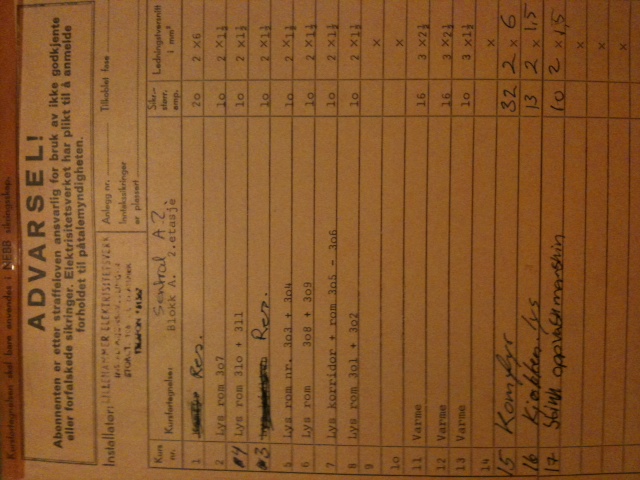 Kursfortegnelsen skal bare anvendes i NEBB sikringsskap.
ADVARSEL!
Abonnenten er etter straffeloven ansvarlig for bruk av ikke godkjente
eller forfalskede sikringer. Elektrisitetsverket har plikt til å anmelde
forholdet til påtalemyndigheten.
Installatør: LILLEHAMMER ELEKTRISITETSVERK
Anlegg nr.
Inntakssikringer
er plassert
Tilkoblet fase
Kurs nr. Kursfortegnelse: Sikr. størr. amp. Ledningstverrsnitt i mm²
Sentral A 2.
Blokk A. 2.etasje
1 Res. 20 2 × 6
2 Lys rom 307 10 2 × 1½
4 Lys rom 310 + 311 10 2 × 1½
3 Res. 10 2 × 1½
5 Lys rom nr. 303 + 304 10 2 × 1½
6 Lys rom 308 + 309 10 2 × 1½
7 Lys korridor + rom 305 - 306 10 2 × 1½
8 Lys rom 301 + 302 10 2 × 1½
9 ×
10 ×
11 Varme 16 3 × 2½
12 Varme 16 3 × 2½
13 Varme 10 3 × 1½
14 ×
15 Komfyr 32 2 × 6
16 Kjøkken lys 13 2 × 1,5
17 oppvaskmaskin 10 2 × 1,5
×
×
×